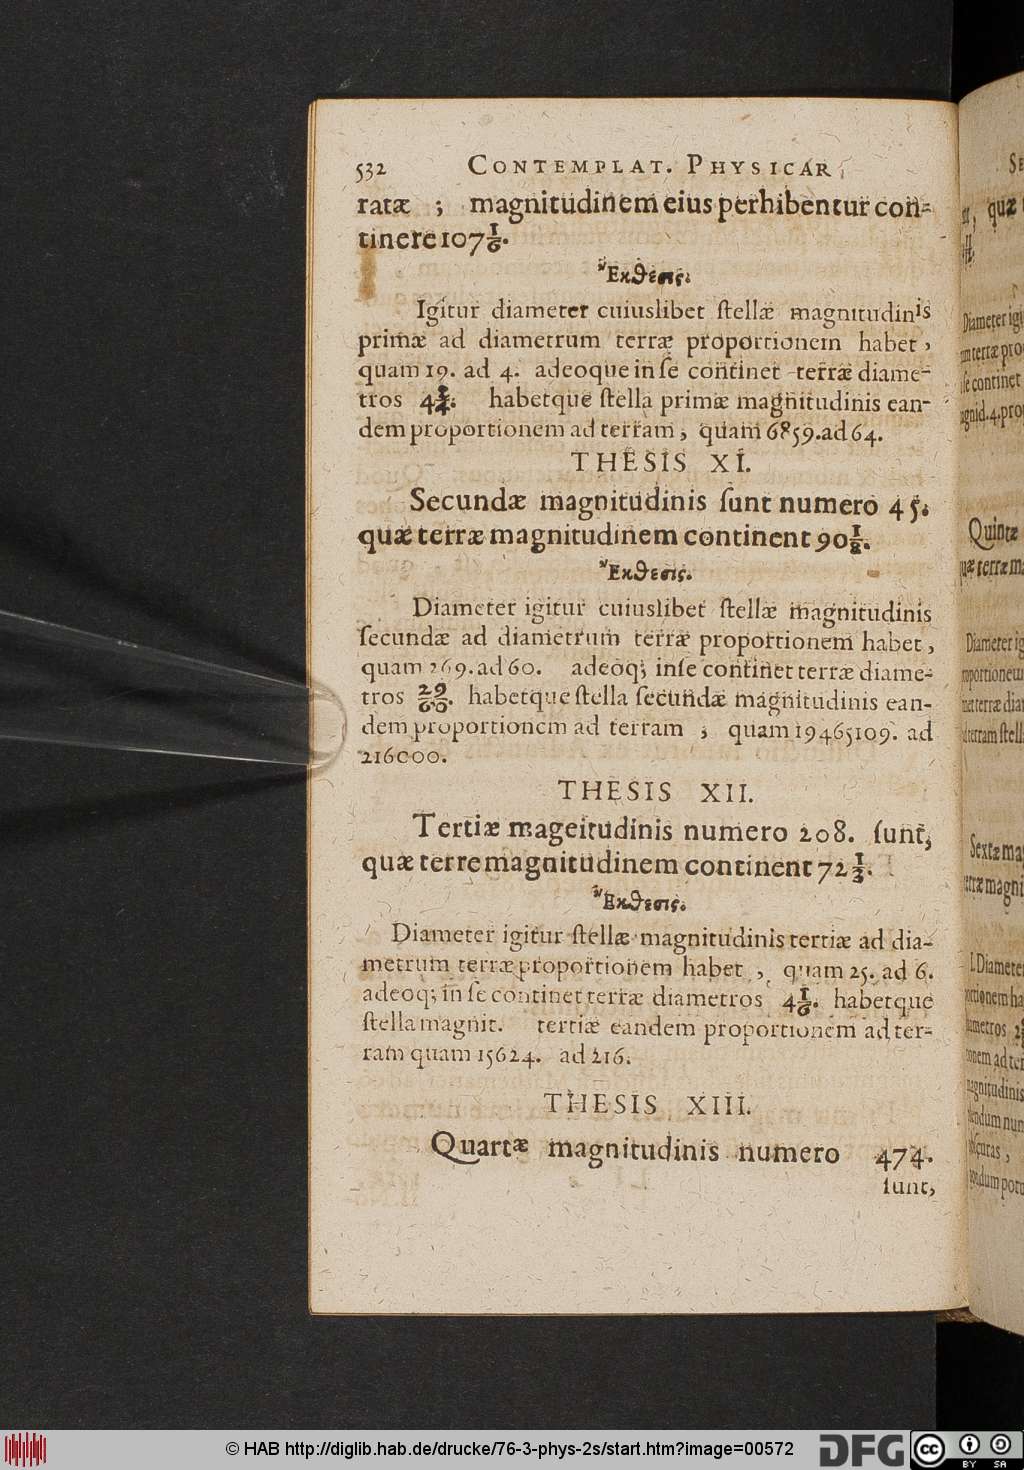 532 CONTEMPLAT. PHYSICAR
ratæ ; magnitudinem eius perhibentur con-
tinere 107 1/6.
Ἔκθεσις.
Igitur diameter cuiuslibet ſtellæ magnitudinis
primæ ad diametrum terræ proportionem habet,
quam 19. ad 4. adeoque in ſe continet terræ diame-
tros 4 3/4. habetque ſtella primæ magnitudinis ean-
dem proportionem ad terram, quam 6859. ad 64.
THESIS XI.
Secundæ magnitudinis ſunt numero 45.
quæ terræ magnitudinem continent 90 1/8.
Ἔκθεσις.
Diameter igitur cuiuslibet ſtellæ magnitudinis
ſecundæ ad diametrum terræ proportionem habet,
quam 269. ad 60. adeoq; inſe continet terræ diame-
tros 29/60. habetque ſtella ſecundæ magnitudinis ean-
dem proportionem ad terram ; quam 19465109. ad
216000.
THESIS XII.
Tertiæ mageitudinis numero 208. ſunt,
quæ terre magnitudinem continent 72 1/3.
Ἔκθεσις.
Diameter igitur ſtellæ magnitudinis tertiæ ad dia-
metrum terræ proportionem habet, quam 25. ad 6.
adeoq; in ſe continet terræ diametros 4 1/6. habetque
ſtella magnit. tertiæ eandem proportionem ad ter-
ram quam 15624. ad 216.
THESIS XIII.
Quartæ magnitudinis numero 474.
ſunt,
quæ
Diameter igi
ſe continet
Quintæ
quæ terræ ma
Diameter ig
Sextæ ma
Diameter
magnitudinis
© HAB http://diglib.hab.de/drucke/76-3-phys-2s/start.htm?image=00572
DFG
cc BY SA